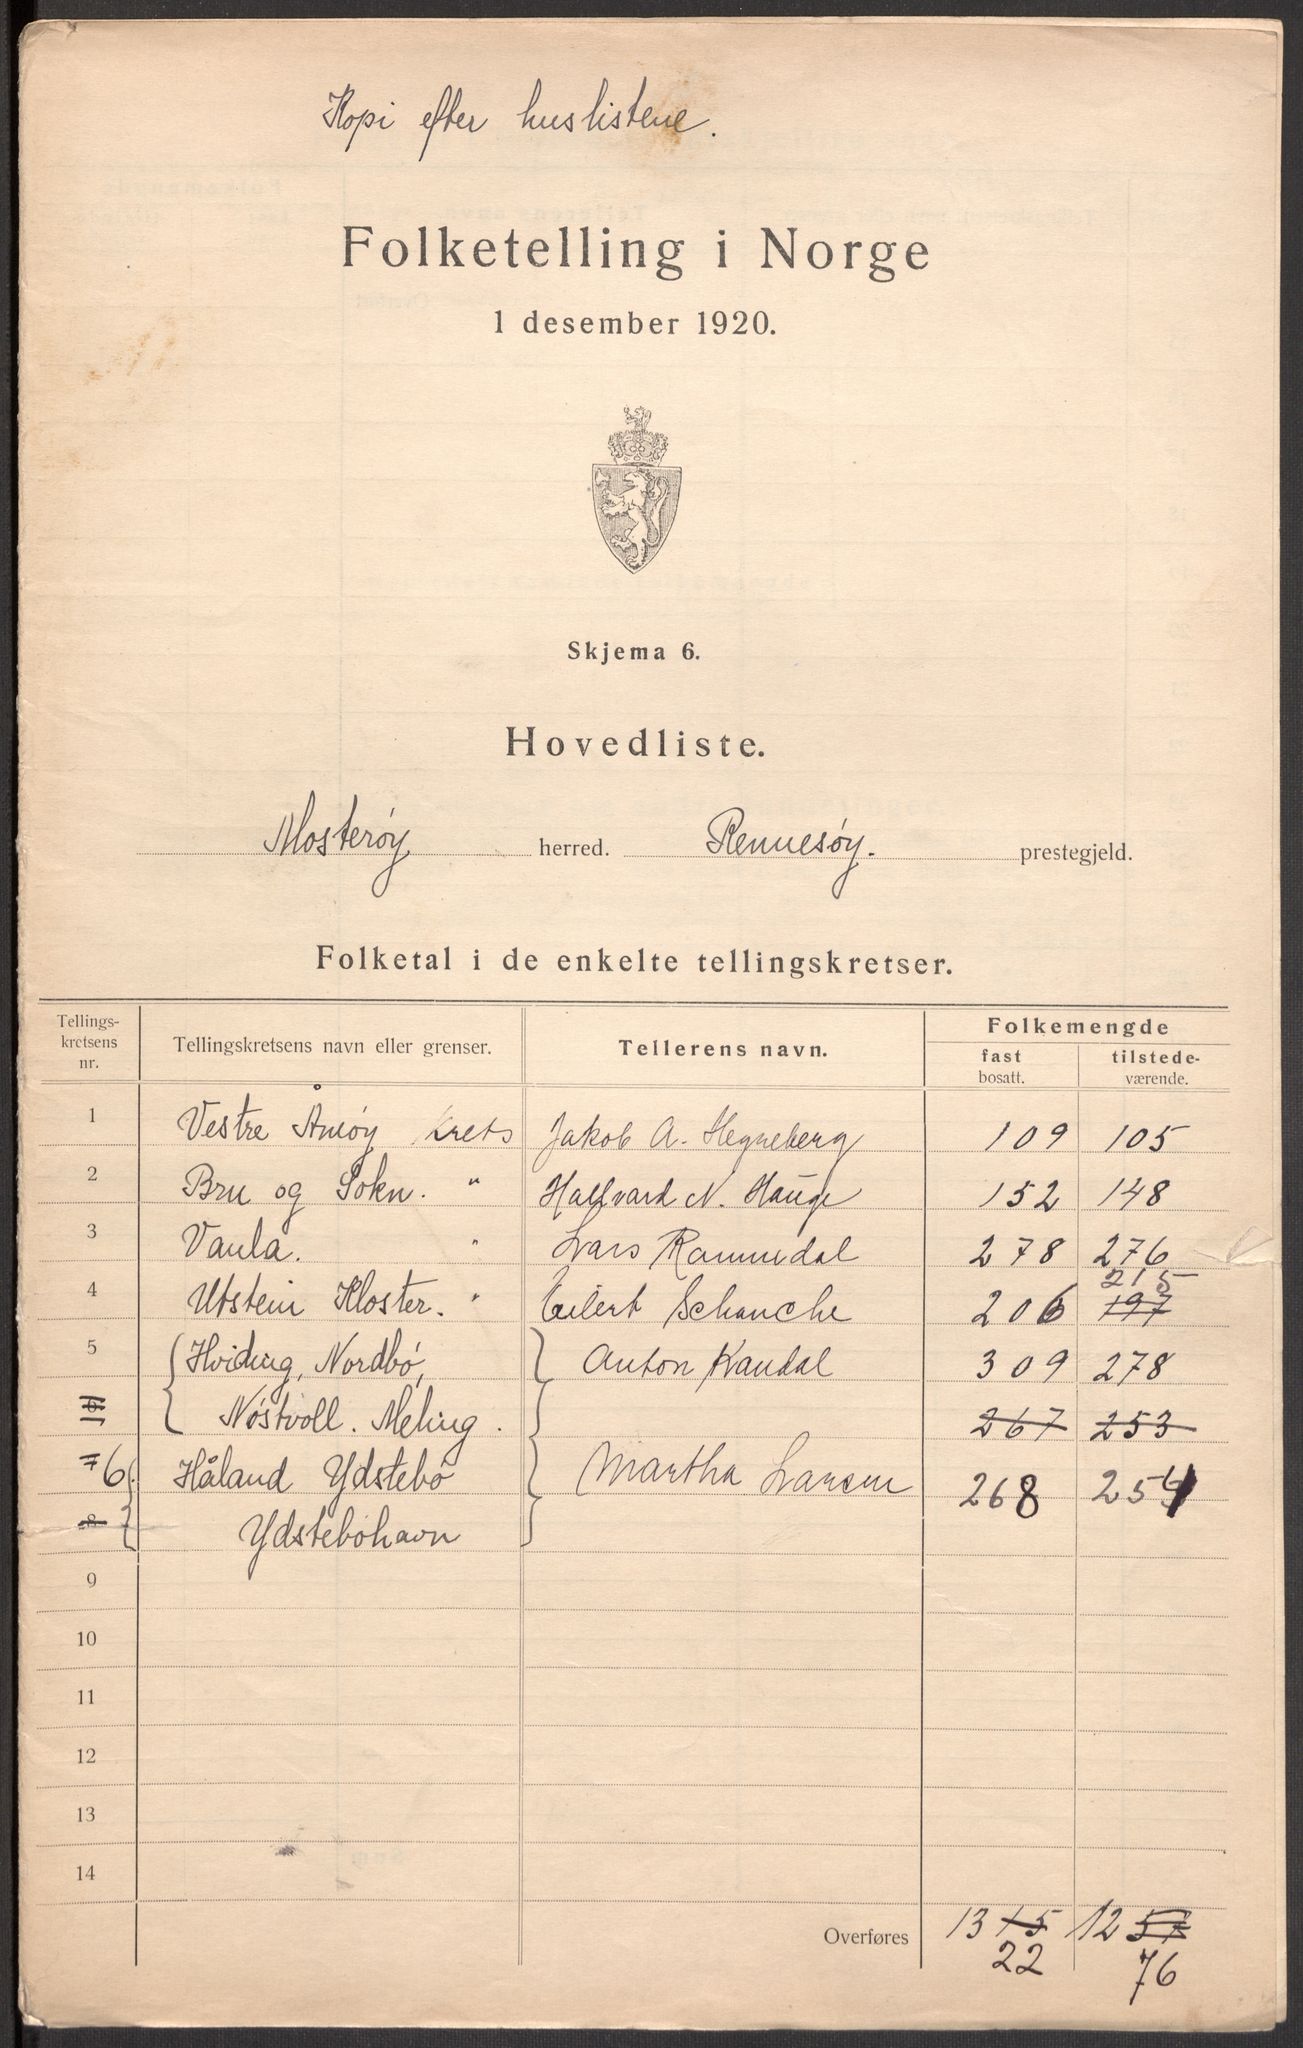 Kopi efter huslistene.
Folketelling i Norge
1 desember 1920.
Skjema 6.
Hovedliste.
Mosterøy herred. Rennesøy. prestegjeld.
Folketal i de enkelte tellingskretser.
Tellings-
kretsens
nr.
Tellingskretsens navn eller grenser.
Tellerens navn.
Folkemengde
fast
bosatt.
tilstede-
værende.
1 Vestre Åmøy Krets Jakob A. Hegneberg 109 105
2 Bru og Sokn. " Hallvard N. Hauge 152 148
3 Vaula. " Lars Ramndal 278 276
215
4 Utstein Kloster. " Eilert Schanche 206 197
5 Hviding, Nordbø, Anton Kandal 309 278
6 Nøstvoll. Meling. 267 253
7 6 Håland Ydstebø Martha Larsen 268 254
8 7 Ydstebøhavn
9
10
11
12
13
14
Overføres 1315 1257
22 76